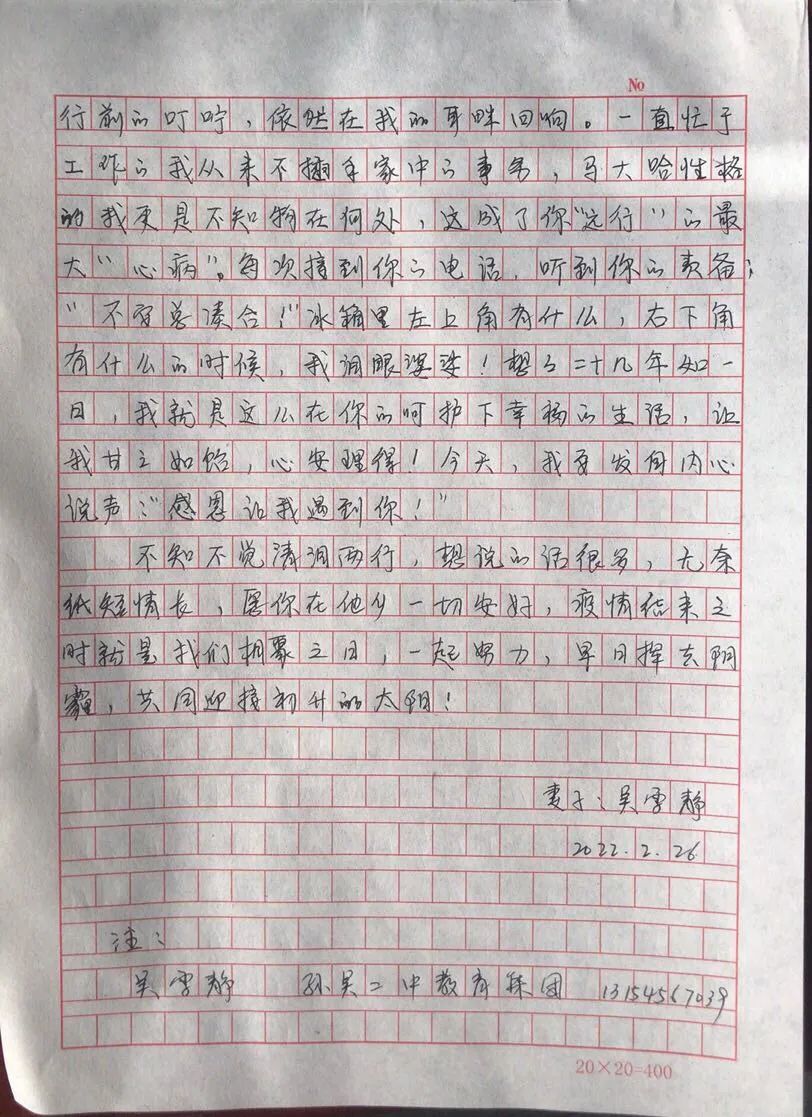 No
行前的叮咛，依然在我的耳畔回响。一直忙于
工作的我从来不插手家中的事务，马大哈性格
的我更是不知物在何处，这成了你“远行”的最
大“心病”。每次接到你的电话，听到你的责备：
“不要总凑合！”冰箱里左上角有什么，右下角
有什么的时候，我泪眼婆娑！想了二十几年如一
日，我就是这么在你的呵护下幸福的生活，让
我甘之如饴，心安理得！今天，我要发自内心
说声：“感恩让我遇到你！”
不知不觉清泪两行，想说的话很多，无奈
纸短情长，愿你在他乡一切安好，疫情结束之
时就是我们相聚之日，一起努力，早日挥去阴
霾，共同迎接初升的太阳！
妻子：吴雪静
2022.2.26
注：
吴雪静 孙吴二中教育集团 13154567039
20×20=400